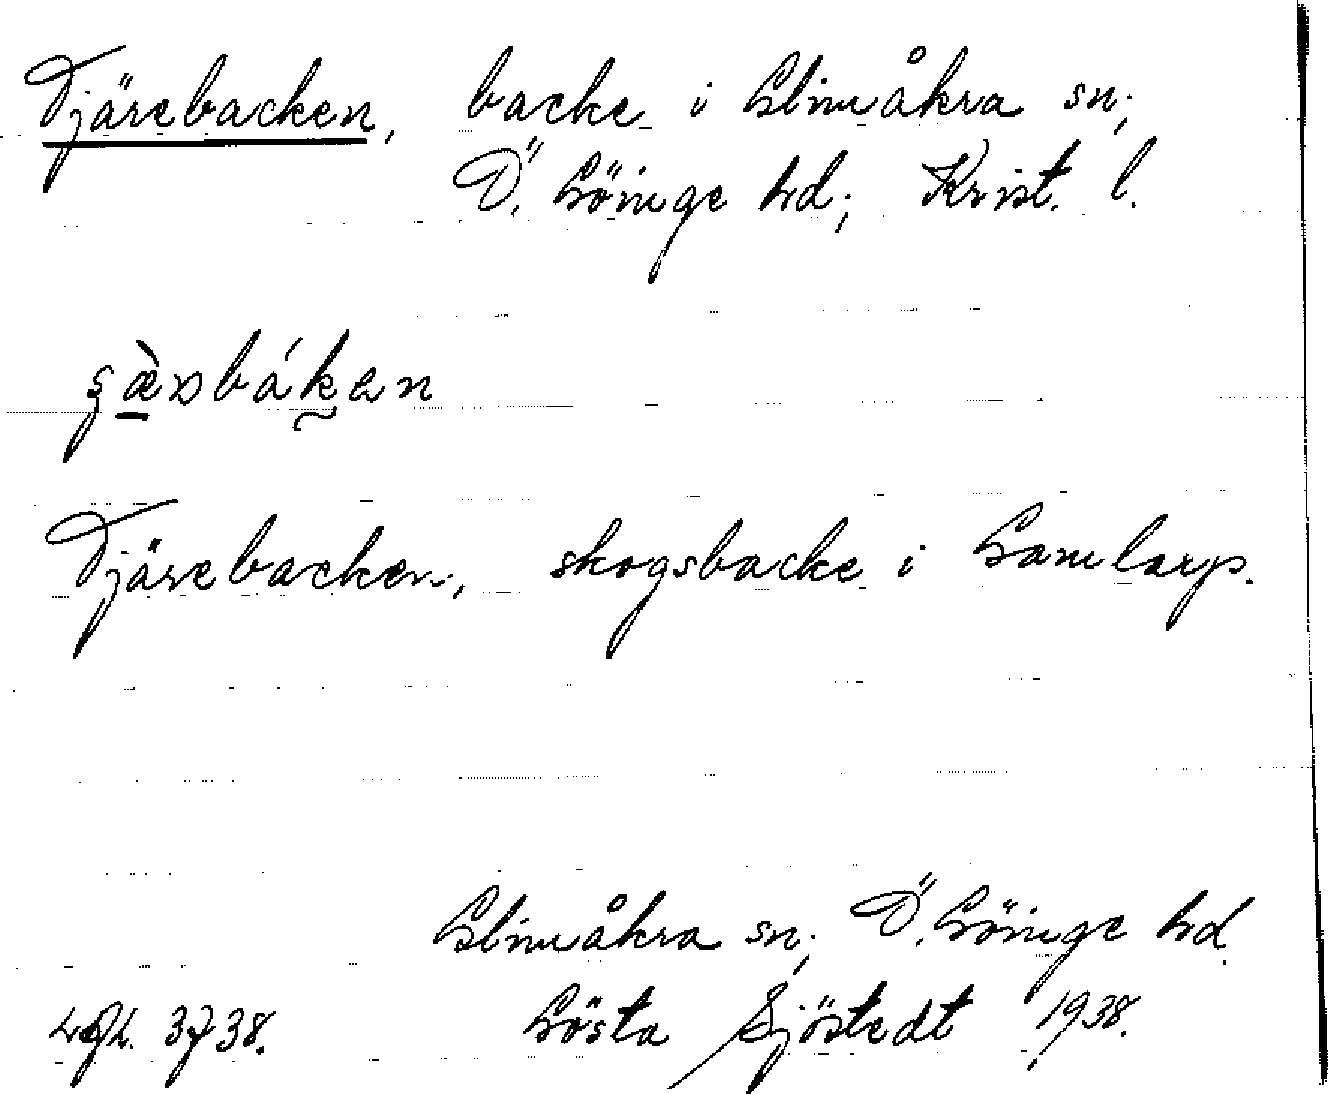 Tjärebacken, backe i Glimåkra sn;
Ö. Göinge hd; Krist. l.
Tjärebacken, skogsbacke i Gamlarp.
Glimåkra sn; Ö. Göinge hd.
Gösta Sjöstedt 1938.